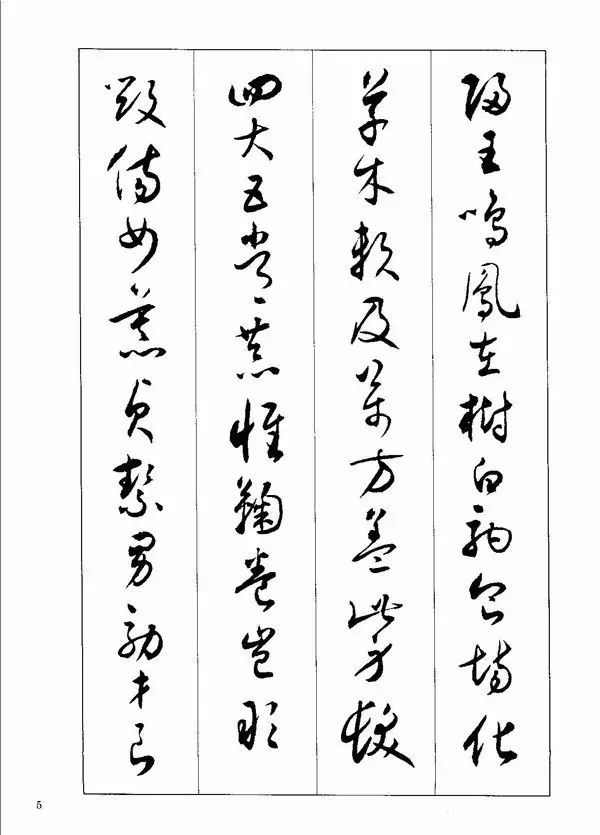 歸王鳴鳳在樹白駒食場化
草木賴及萬方蓋此身髮
四大五常恭惟鞠養豈敢
毀傷女慕貞絜男效才良
5